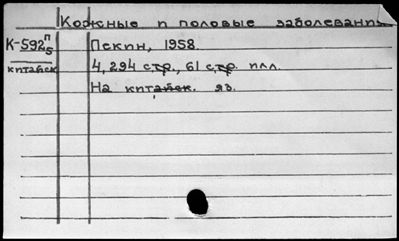 Кожные и половые заболевания
К-592п/5 Пекин, 1958.
китайск 4, 294 стр., 61 стр. илл.
На китайск. яз.